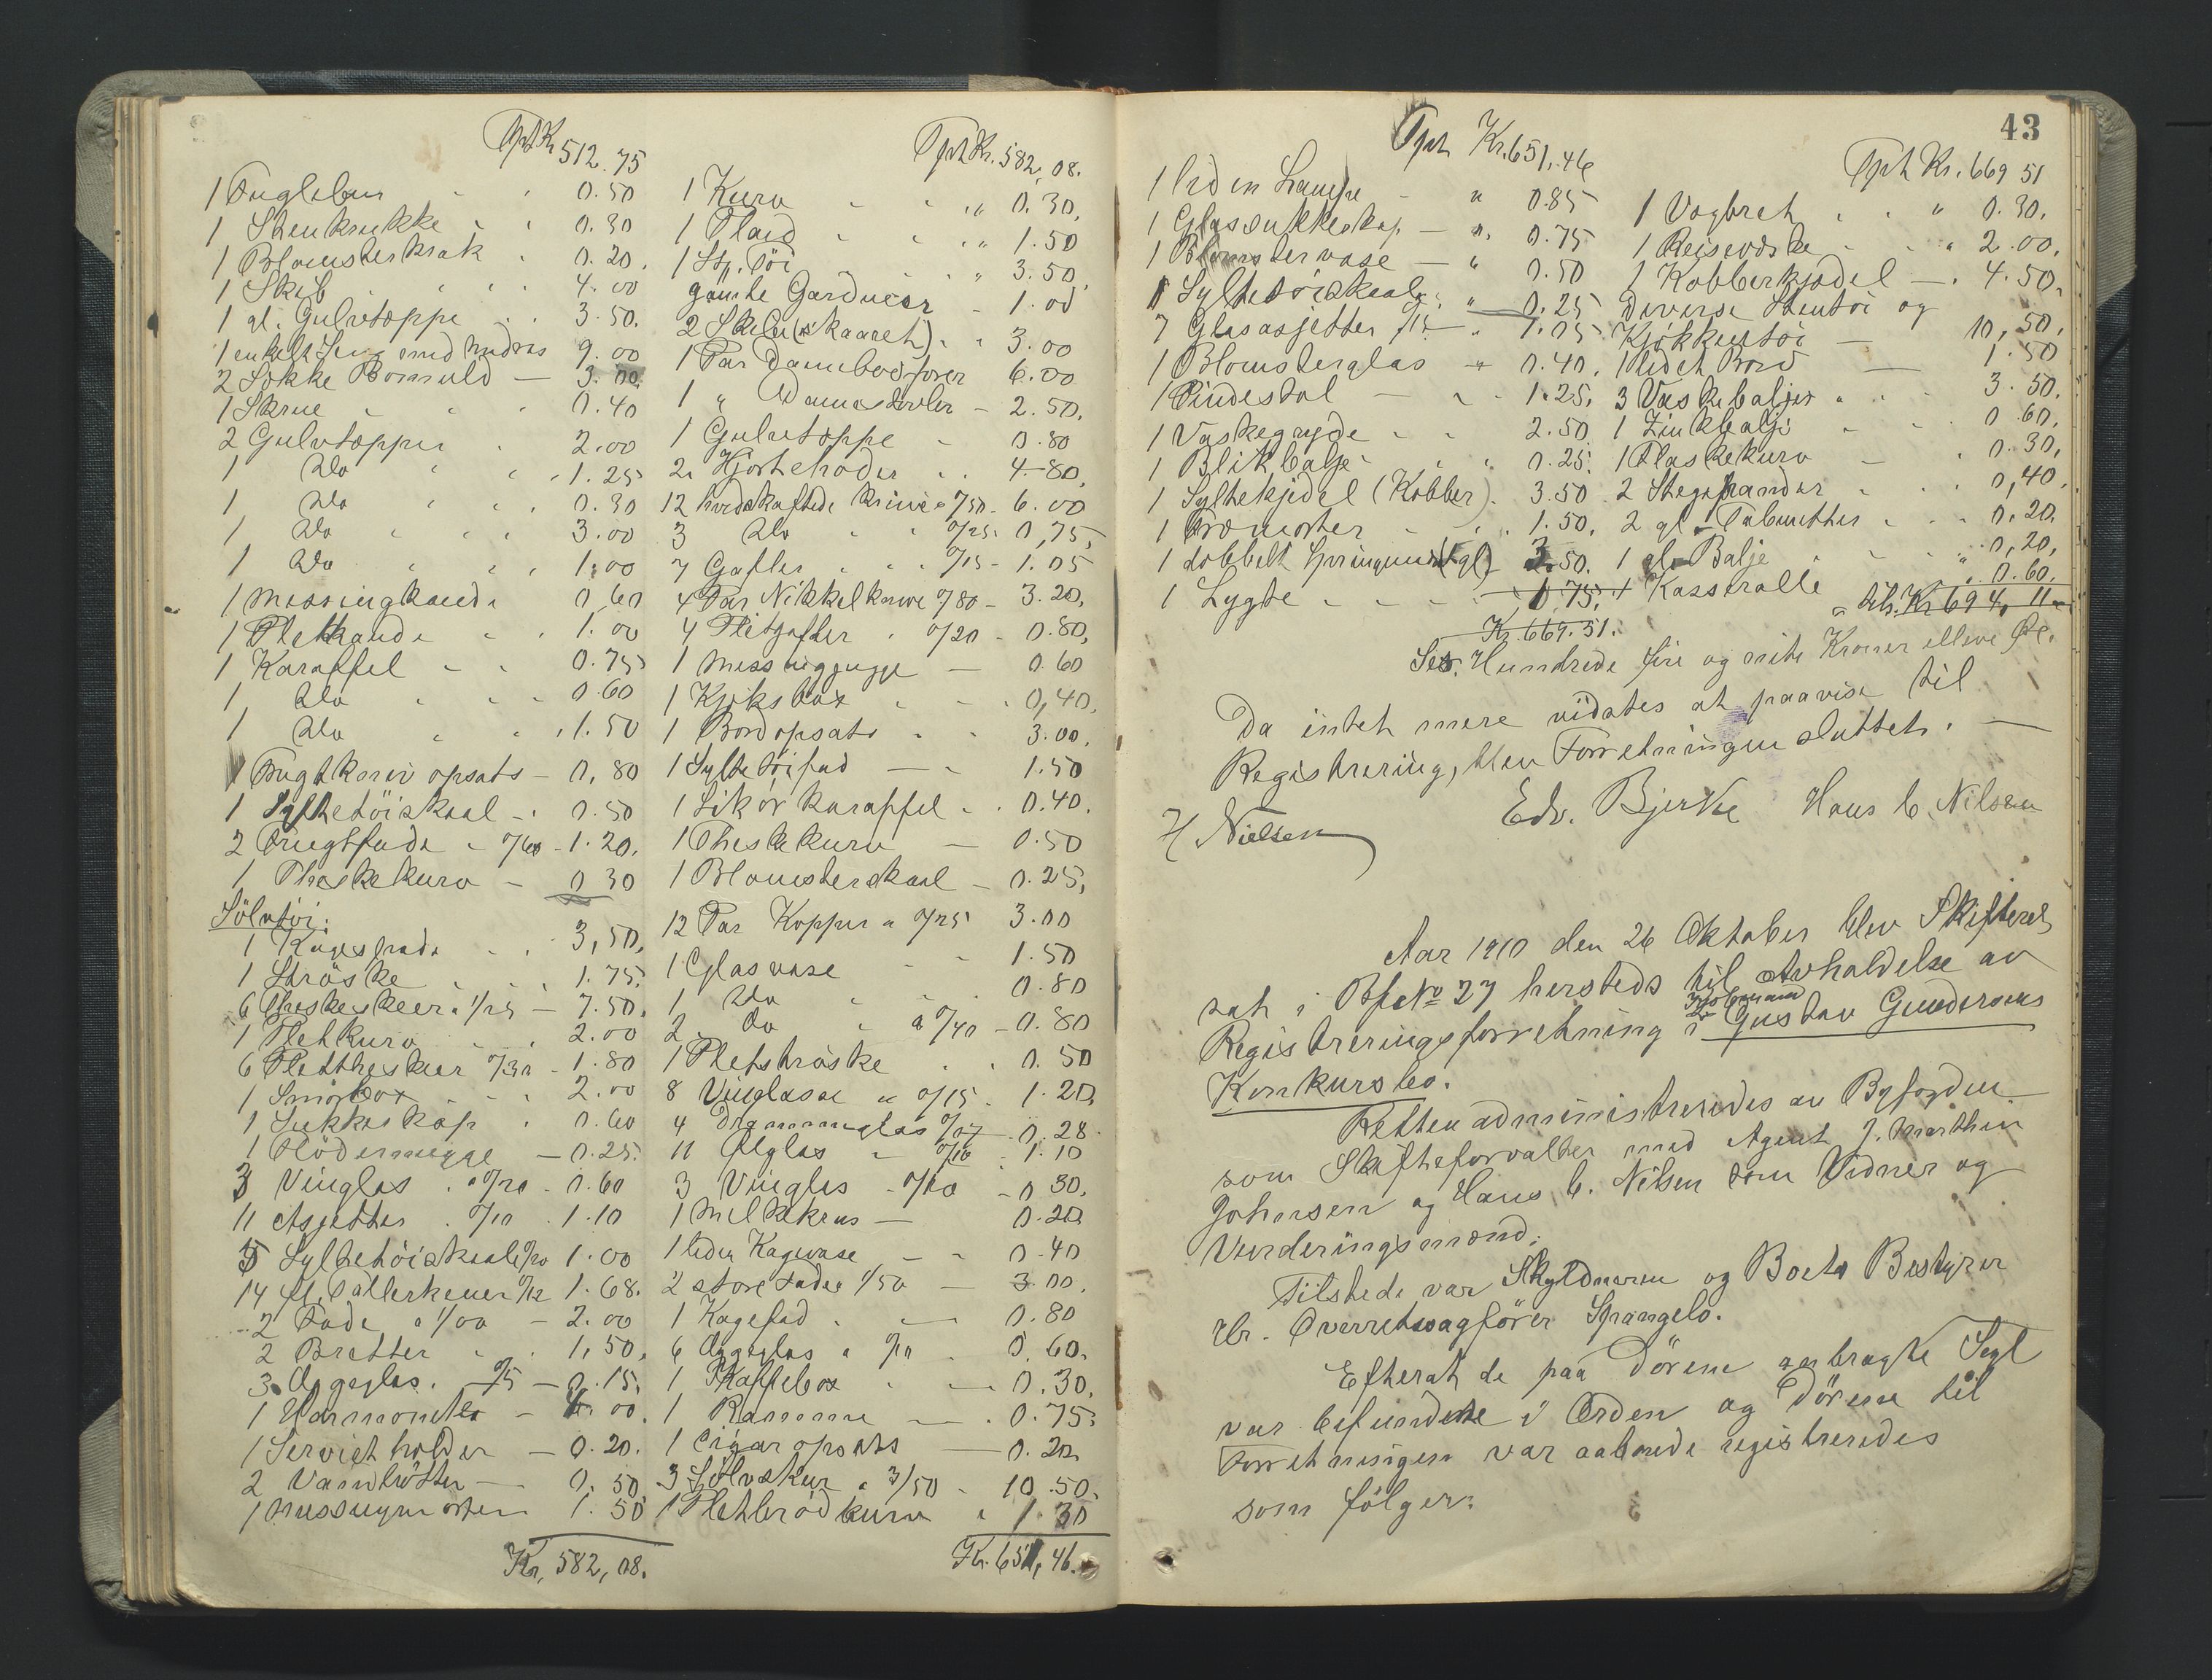 Tpt Kr 512.75
1 Fuglebur " " 0.50
1 Stenkrukke " " 0.30
1 Blomsterkrak " 0.20.
1 Skib " " " 4.00
1 gl. Gulvtæppe " " 3.50.
1 enkelt Seng med Madras 9.00
2 Stykke Bomuld — 3.00.
1 Skrue " " " 0.40
2 Gulvtæpper " 2.00
1 Do " " 1.25
1 Do " " 0.30
1 Do " " " 3.00
1 Do " " " 1.00
1 Messingkande 0.60
1 Pletkande " " 1.00
1 Karaffel " " 0.75
1 Do " " " 0.60
1 Do " " 1.50
1 Frugtkurv opsats — 0.80
1 Syltetöiskaal — " 0.50
2 Frugtfade " º/60 - 1.20.
1 Theskekurv — 0.30
Sölvtöi:
1 Kagespade " " 3,50.
1 Ströske " " " 1.75.
6 Theskeskeer " 1/25 — 7.50.
1 Pletkurv " " 2.00
6 Plettheskeer º/30 - 1.80
1 Smörbox " " " 2.00
1 Sukkerskap " 0.60
1 Flödemugge — 0.25.
3 Vinglas " a º/20 - 0.60
11 Asjetter " º/10 . 1.10
5 Syltetöiskaale º/20 1.00
14 fl. Tallerkener º/12 1.68.
2 Fade " a 1/00 — 2.00
2 Bretter " " 1,50.
3 Æggeglas. º/5 — 0.15.
1 Harmonika — 6.00.
1 Serviet holder — 0.20.
2 Vandbötter — 0.50
1 Messingmorter 1.50
Kr. 582,08.
Tpt Kr. 582,08.
1 Kurv " " " 0.30.
1 Plaid " " " 1.50
1 Stp. Töi " " 3.50
gamle Gardiner - 1.00
2 Skeler (skaaret) " 3.00
1 Par Damebotforer 6.00
1 " Damestövler — 2.50.
1 Gulvtæppe - 0.80
2 Hjortehoder " " 4.80.
12 hvidskaftede knive a º/50 - 6.00
3 Do " " º/25. 0,75,
7 Gafler " " " º/15 - 1.05
4 Par Nikkelknive º/80 - 3.20.
4 Pletgafler " º/20 - 0.80.
1 Messingmugge — 0.60
1 Kjeksbox " " 0,40.
1 Bordopsats " " 3.00.
1 Syltetöifad — " 1.50
1 Likör karaffel " . 0.40.
1 Theskekurv — 0.50
1 Blomsterskaal — 0.25,
12 Par Kopper a º/25 3.00
1 Glasvase " " 1.50
1 Do " " " 0.80
2 do " a º/40 - 0.80
1 Pletströske " . 0.50
8 Vinglasse a º/15 . 1.20.
4 Drammeglas º/07 - 0.28
11 Ølglas " º/10 - 1.10
3 Vinglas - º/10 - 0.30.
1 Melkekrus — 0.20
1 liden Kagevase — " 0.40
2 store Fade a 1/50 — 3.00.
1 Kagefad " — 0.80
6 Æggeglas a º/10 . 0.60.
1 Kaffebox " — 0.30.
1 Ramme — . 0.75.
1 Cigaropsats — 0.20
3 Sölvskeer a 3/50 - 10.50.
1 Pletbrödkurv " 1.30
Kr. 651,46.
43
Tpt Kr. 651.46
1 liden Lampe - " 0.85
1 Glassukkerskap — ". 0.75
1 Blomstervase — " 0.50
1 Syltetöiskaal " 0.25
7 Glasasjetter º/15 — " 1.05
1 Blomsterglas — " 0.40.
1 Pindestol — " . 1.25.
1 Vaskegryde " " 2.50
1 Blikbalje " " 0.25.
1 Syltekjedel (Kobber). 3.50
1 Træmorter " " 1.50.
1 dobbelt Springmad(gl) 3.50.
1 Lygte " - - - 0.75.
Kr. 669.51.
Tpt Kr. 669 51
1 Vogbret " . " 0.30.
1 Reisevæske " . " 2.00.
1 Kobberkjedel — . 4.50.
Diverse Stentöi og
Kjökkentöi — 10,50.
1 lidet Bord — 1.50
3 Vaskebaljer " . 3.50.
1 Zinkbalje " " 0.60.
1 Flaskekurv — " 0.30,
2 Stegepander " " 0,40.
2 gl. Taburetter " . . 0.20.
1 gl. Balje " . " 0,20,
1 Kasseralle " . 0.60.
tils. Kr 694, 11
Sex Hundrede fire og nite Kroner elleve Øre.
Da intet mere vidstes at paavise til
Registrering, blev Forretningen sluttet. —
H Nielsen Edv. Bjerke Hans C. Nilsen
Aar 1910 den 26 Oktober blev Skifteret
sat i Bfc No 27 hersteds til Avholdelse av
Registreringsforretning i Gustav Gundersens
Konkursbo.
Retten administreredes av Byfogden
som Skifteforvalter med Agent J. Marthin
Johansen og Hans C. Nilsen som Vidner og
Vurderingsmænd.
Tilstede var Skyldneren og Boets Bestyrer
Hr. Overretssagförer Spangelo.
Efterat de paa Dörene anbragte Segl
var befundne i Orden og Dörene til
Forretningen var aabnede registreredes
som fölger: